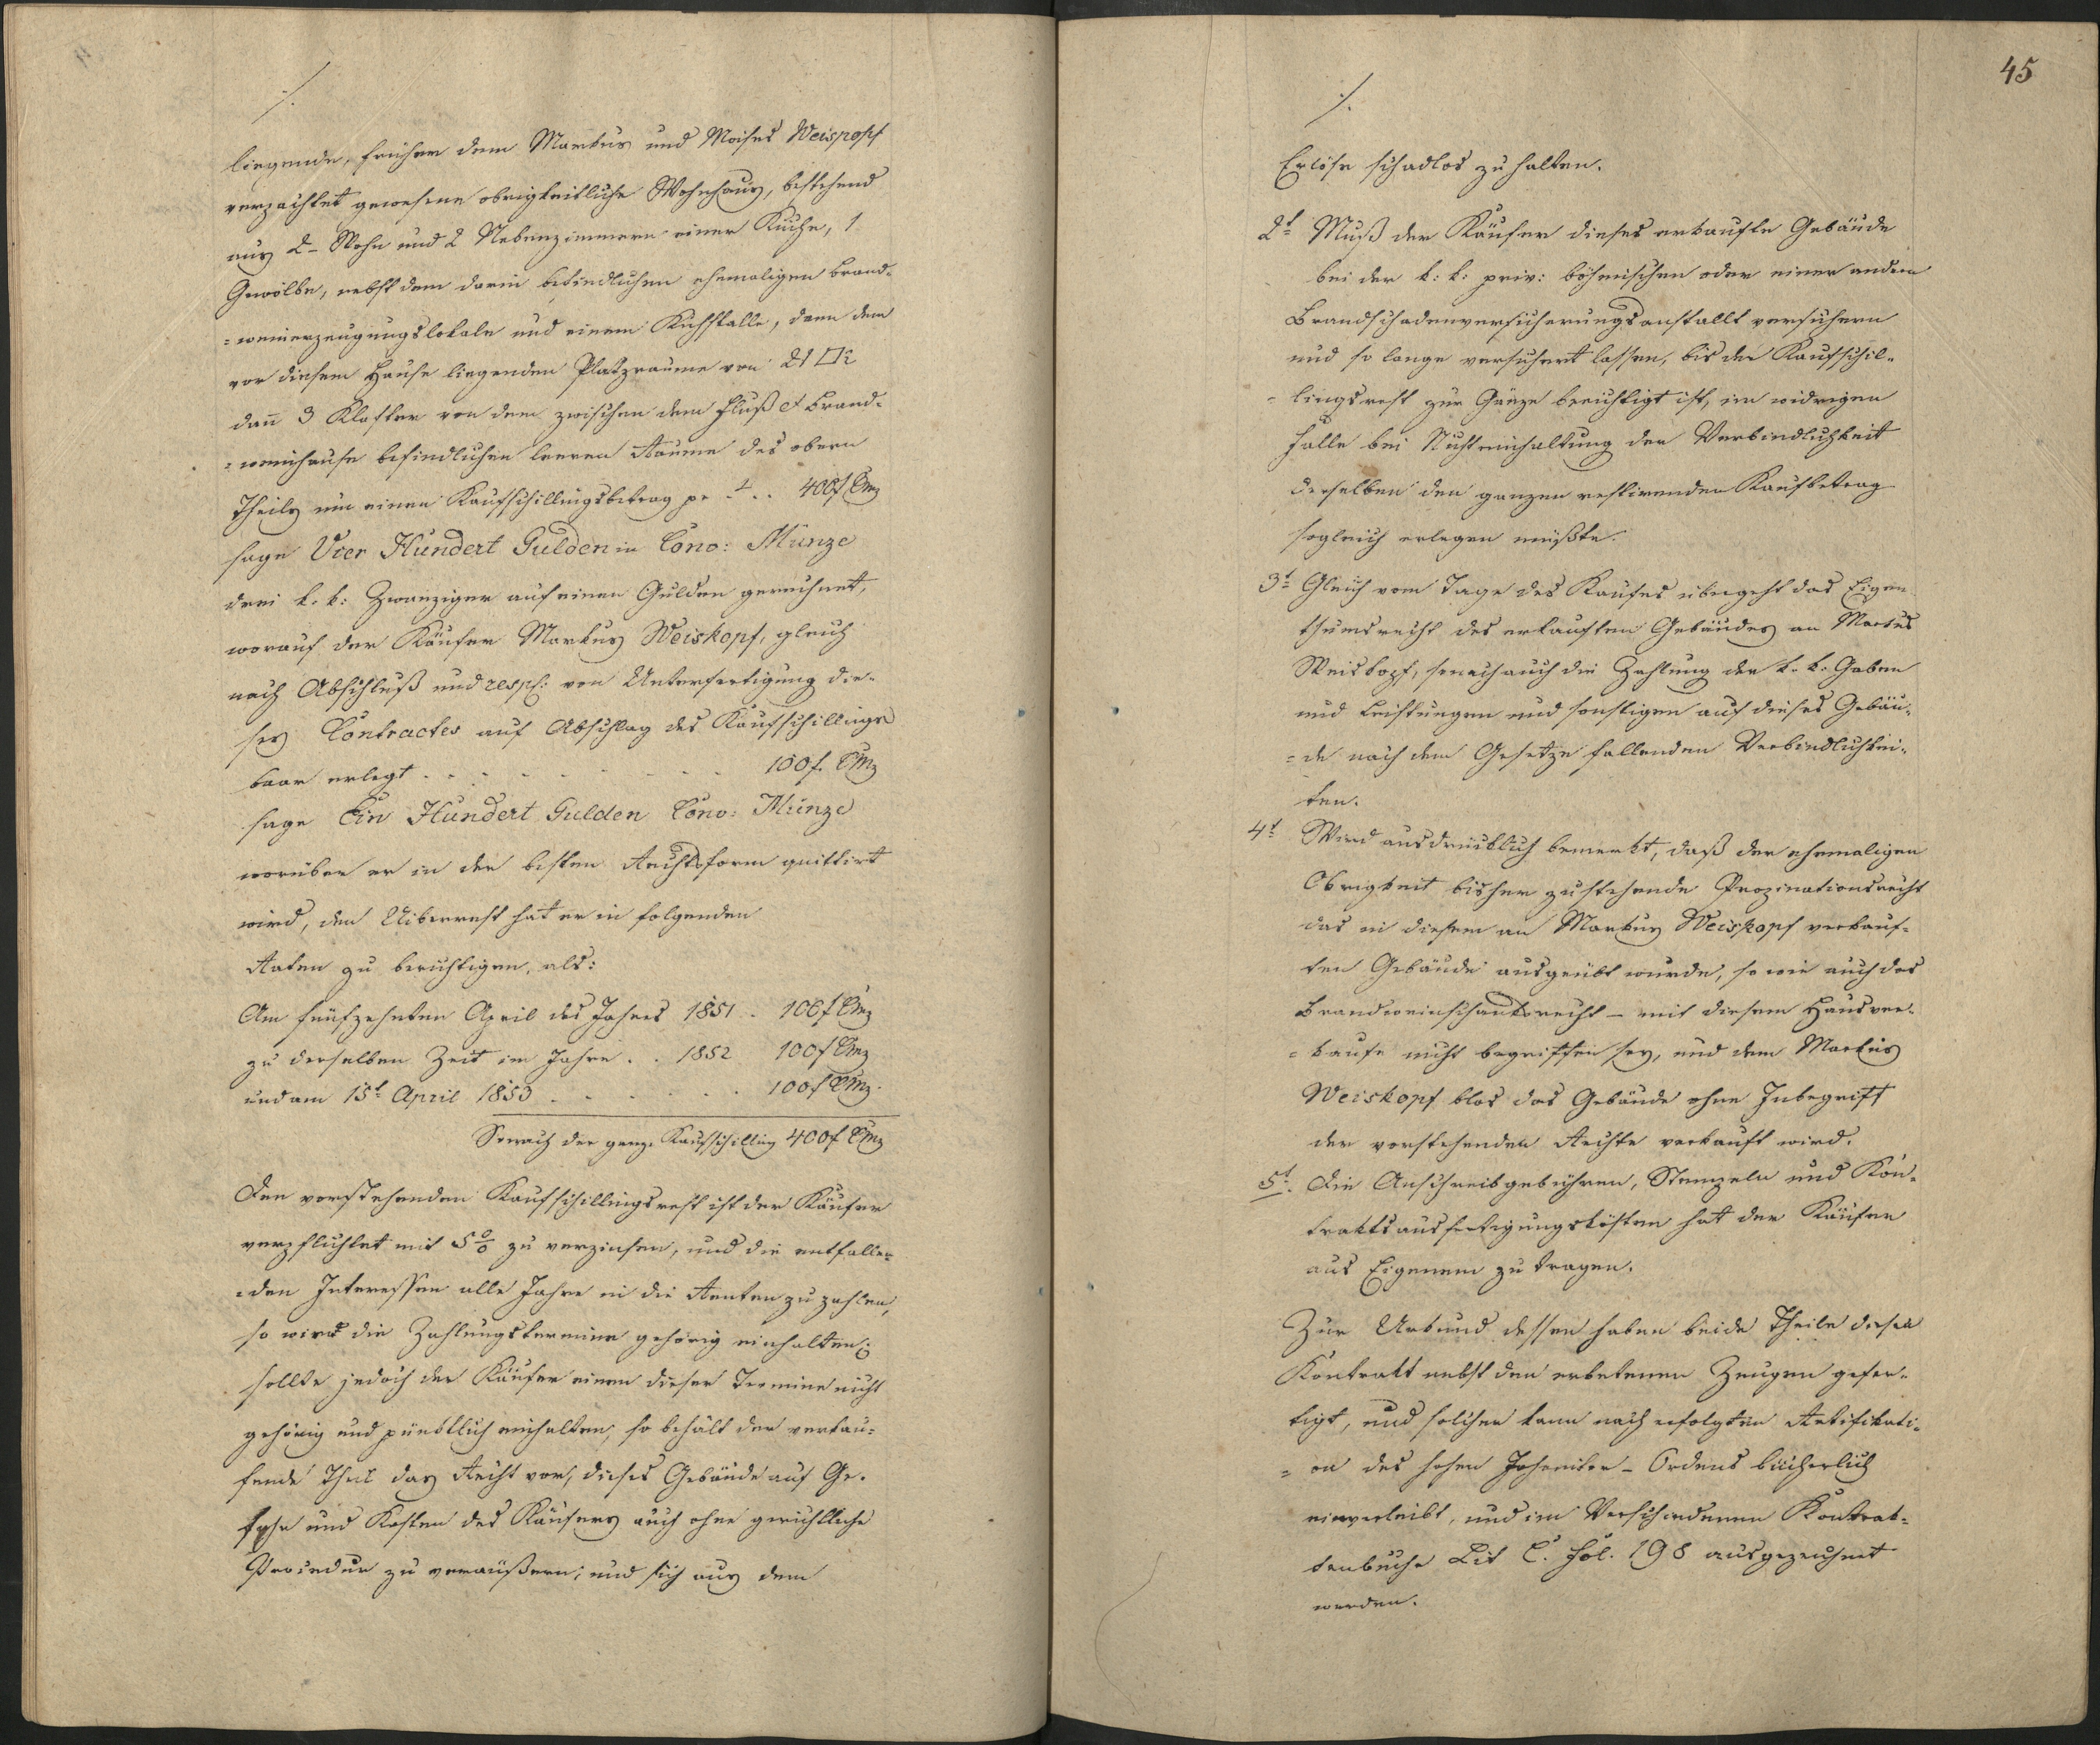 ./.
liegende, früher dem Markus und Moises Weiskopf
verpachtet gewesene obrigkeitliche Wohnhaus, bestehend
aus 2- Wohn und 2 Nebenzimmern einer Küche, 1
Gewölbe, nebst dem darin befindlichen ehemaligen Brand-
=weinerzeugungslokale und einem Kuhstalle, dann dem
vor diesem Hause liegenden Platzraume von 21 □
dann 3 Klafter von dem zwischen dem Fluß et Brand-
=weinhause befindlichen leeren Raume des obern
Theils um einen Kaufschillingsbetrag pr .. 400 f CMz
sage Vier Hundert Gulden in Conv: Münze
drei k. k: Zwanziger auf einen Gulden gerechnet,
worauf der Käufer Markus Weiskopf, gleich
nach Abschluß und resp: von Unterfertigung die-
ses Contractes auf Abschlag des Kaufschillings
baar erlegt . . . . . . . . . 100 f. CMz
sage Ein Hundert Gulden Conv: Münze
worüber er in der besten Rechtsform quittirt
wird, den Uiberrest hat er in folgenden
Raten zu berichtigen, als:
Am fünfzehnten April des Jahres 1851 . 100 f CMz
zu derselben Zeit im Jahre . . 1852 100 f CMz
und am 15t April 1853 . . . . . . 100 f CMz.
Sonach der ganze Kaufschilling 400 f CMz
Den vorstehenden Kaufschillingsrest ist der Käufer
verpflichtet mit 5 % zu verzinsen, und die entfallen-
=den Interessen alle Jahre in die Renten zu zahlen,
so wird die Zahlungstermine gehörig einhalten;
sollte jedoch der Käufer einen dieser Termine nicht
gehörig und pünktlich einhalten, so behält der verkau-
fende Theil das Recht vor, dieses Gebäude auf Ge-
fahr und Kosten des Käufers auch ohne gerichtliche
Procedur zu veräußern; und sich aus dem
45
./.
Erlöse schadlos zu halten.
2t Muß der Käufer dieses erkaufte Gebäude
bei der k: k: priv: böhmischen oder einer andern
Brandschadenversicherungsanstallt versichern
und so lange versichert lassen, bis der Kaufschil-
=lingsrest zur Gänze berichtigt ist, im widrigen
Falle bei Nichteinhaltung der Verbindlichkeit
derselben den ganzen restirenden Kaufbetrag
sogleich erlegen müßte.
3t Gleich vom Tage des Kaufes übergeht das Eigen
thumsrecht des erkauften Gebäudes an Markus
Weiskopf, sonach auch die Zahlung der k. k. Gaben
und Leistungen und sonstigen auf dieses Gebäu-
=de nach dem Gesetze fallenden Verbindlichkei-
ten.
4t Wird ausdrücklich bemerkt, daß der ehemaligen
Obrigkeit bisher zustehende Propinationsrecht
das in diesem an Markus Weiskopf verkauf-
ten Gebäude ausgeübt wurde, so wie auch das
Brandweinschanksrecht – mit diesem Hausver-
=kaufe nicht begriffen sey, und dem Markus
Weiskopf blos das Gebäude ohne Inbegriff
der vorstehenden Rechte verkauft wird.
5t. Die Anschreibgebühren, Stempeln und Kon-
traktsausfertigungskösten hat der Käufer
aus Eigenem zu tragen.
Zur Urkund dessen haben beide Theile diesen
Kontrakt nebst den erbetenen Zeugen gefer-
tigt, und solcher kann nach erfolgten Ratifikati-
=on des hohen Johaniter – Ordens bücherlich
einverleibt, und im Verschiedenen Kontrak-
tenbuche Lit C. Fol. 198 ausgezeichnet
werden.